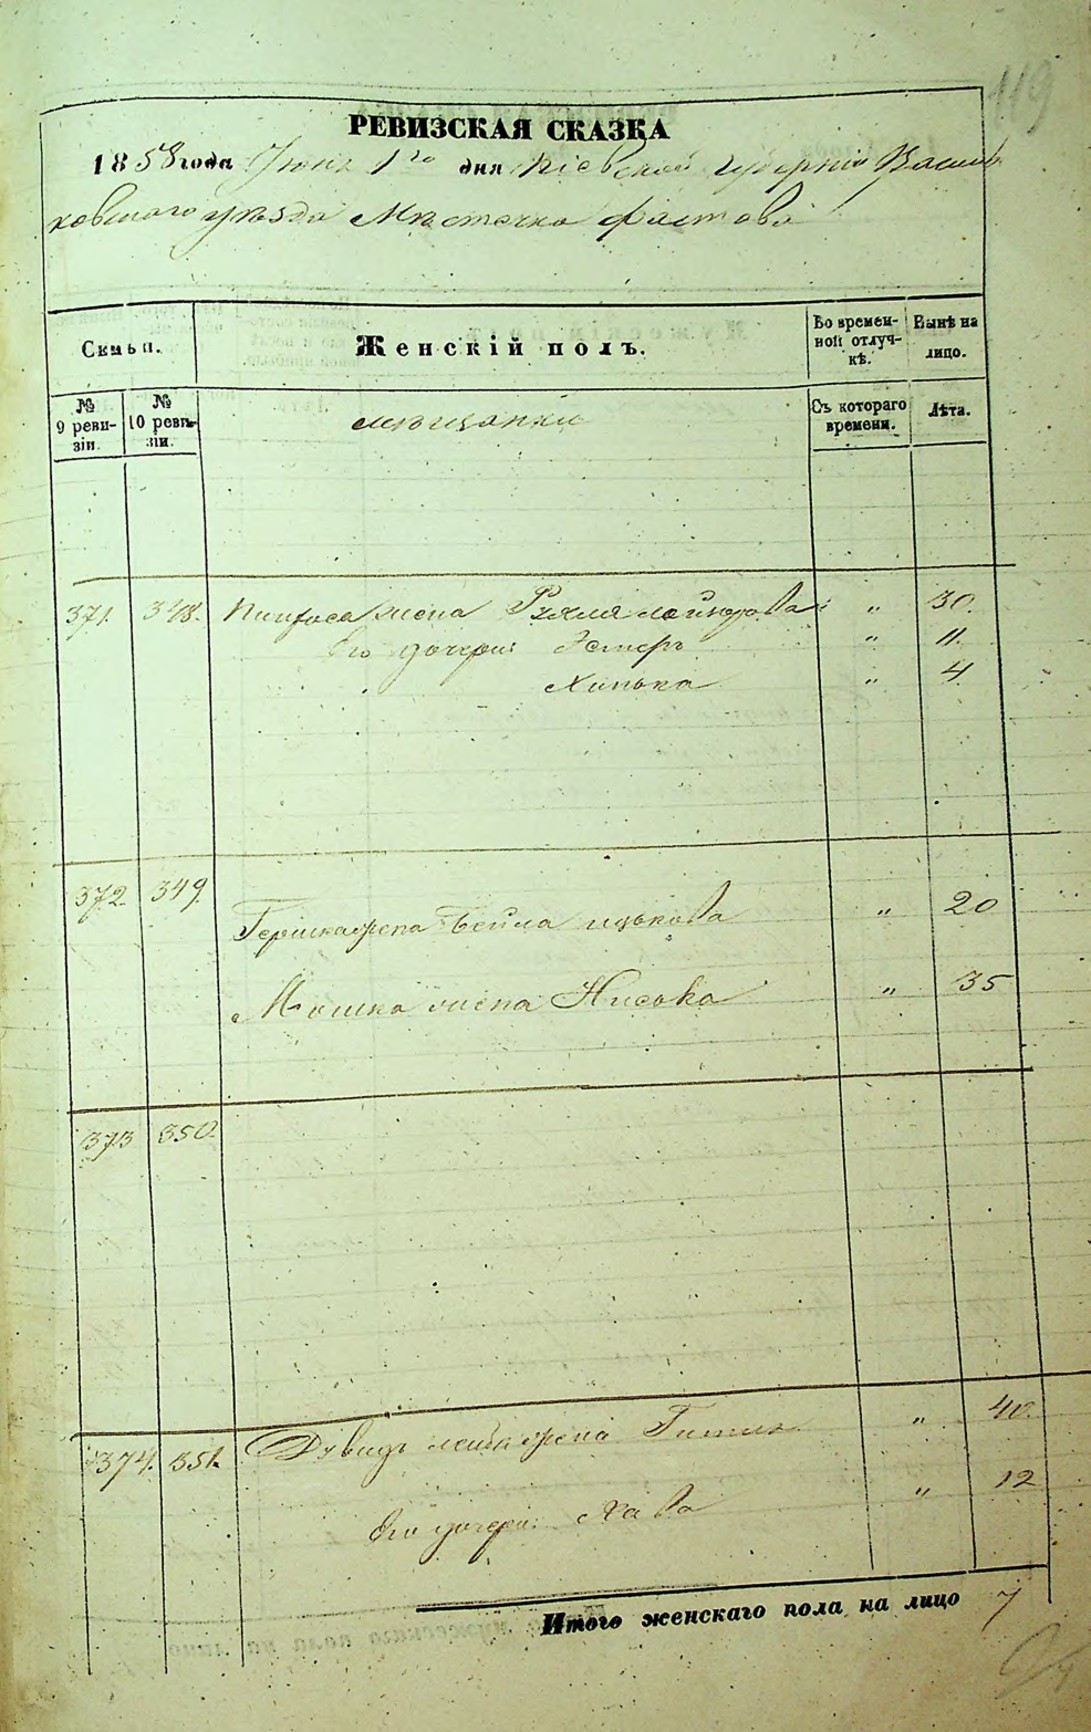 119
РЕВИЗСКАЯ СКАЗКА
1858 года Июня 1го дня Кіевской губерніи Василь
ковского уѣзда Мѣстечка Фастова
Семьи.
Женскій полъ.
Во времен-
ной отлуч-
кѣ.
Нынѣ на
лицо.
№
9 реви-
зіи.
№
10 реви-
зіи.
мѣщанки
Съ котораго
времени.
Лѣта.
371. 348. Пинхоса жена Рухля " 30.
Его дочери: Эстеръ " 11.
Хинька " 4
372. 349. Гершка жена Бейла Ицькова " 20
Мошка жена Хисока " 35
373 350.
374. 351. Довидъ Лейба жена Гитля " 40.
Его дочери: Хава " 12
Итого женскаго пола на лицо 7